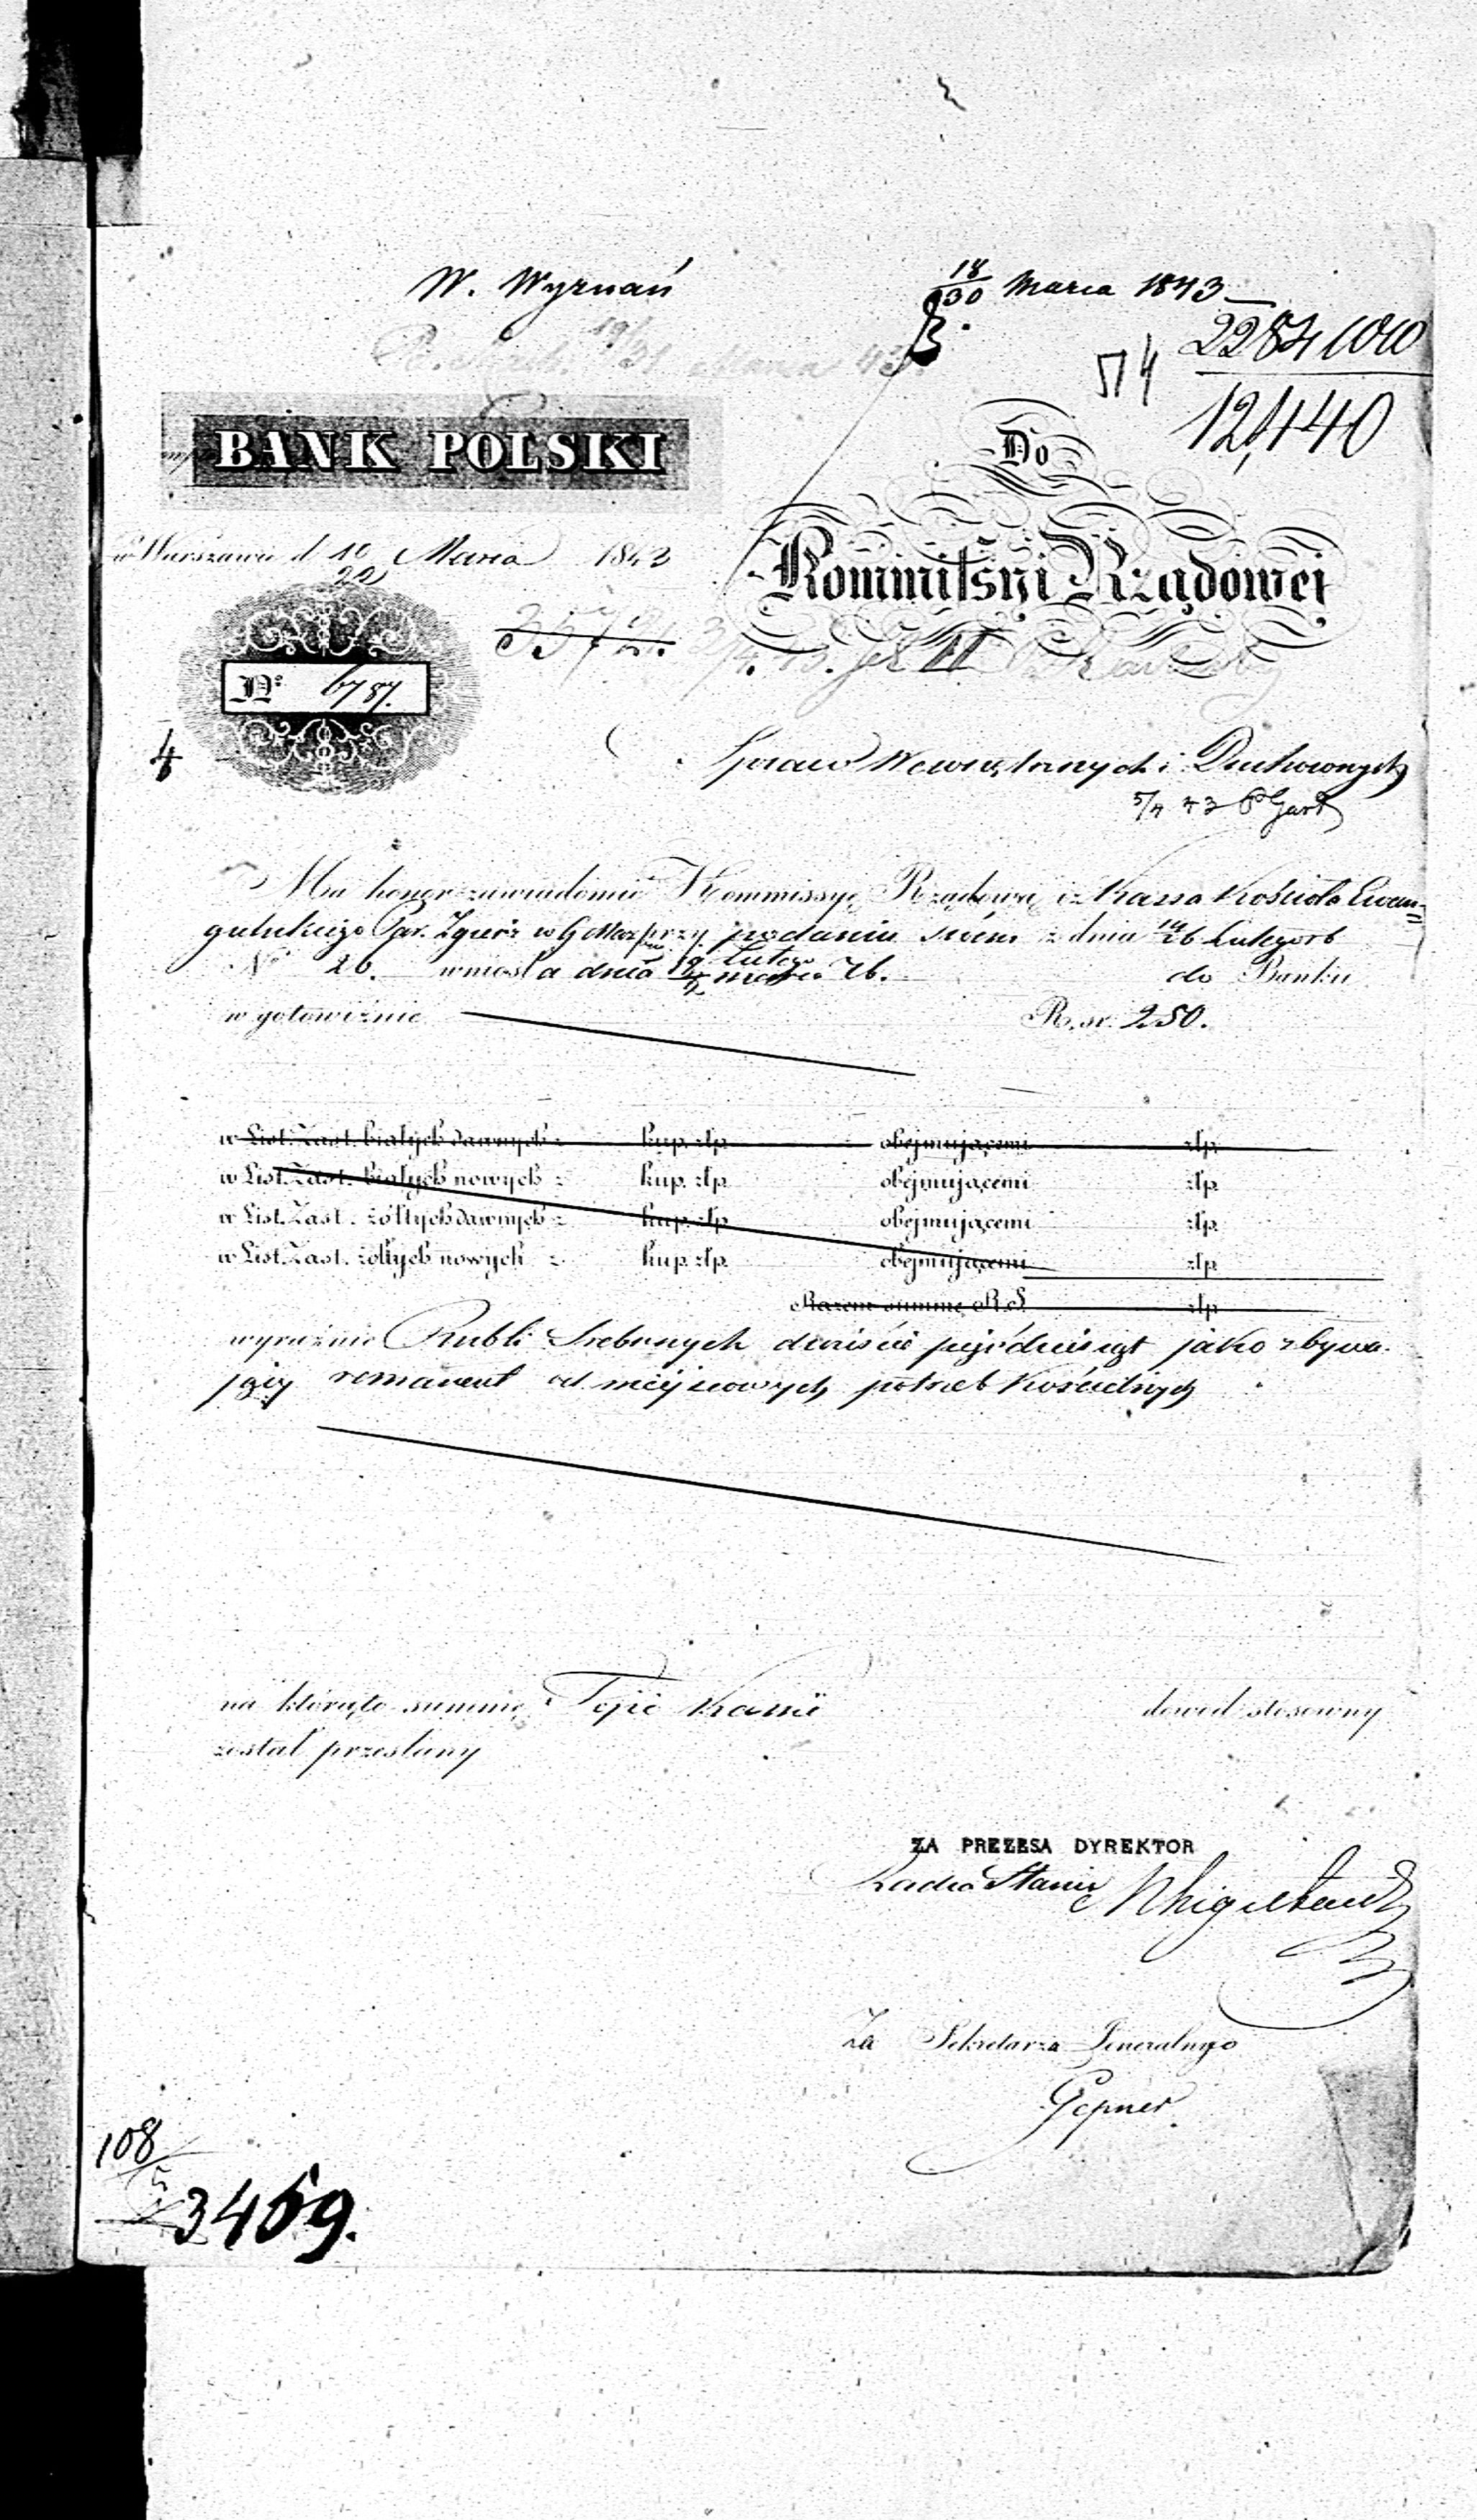 W. Wyznań
18/30 Marca 1843
22841010
12,440
П4
19/31 Marca 43
BANK POLSKI
Do
Kommissyi Rządowej
w Warszawie d. 10/22 Marca 1843
No 6787.
4
Spraw Wewnętrznych i Duchownych
5/4 43
Ma honor zawiadomić Kommissyę Rządową iż Kassa Kościoła Ewan=
gielickiego Par. Zgierz w G Maz przy podaniu swém z dnia 14/26 Lutego r b
No 26. wniosła dnia Lutego Marca r b. do Banku
w gotowiźnie R. sr. 250.
w List. Zast. białych dawnych z kup. złp. obejmującemi złp.
w List. Zast. białych nowych z kup. złp. obejmującemi złp.
w List. Zast. żółtych dawnych z kup. złp. obejmującemi złp.
w List. Zast. żółtych nowych z kup. złp. obejmującemi złp.
Razem summę R.S. złp.
wyraźnie Rubli Srebrnych dwieście pięćdziesiąt jako zbywa-
jący remanent od miejscowych potrzeb Kościelnych
na którąto summę Tejże Kassie dowód stosowny
został przesłany
ZA PREZESA DYREKTOR
Radca Stanu
Za Sekretarza Jeneralnego
Gepner
108
3469.